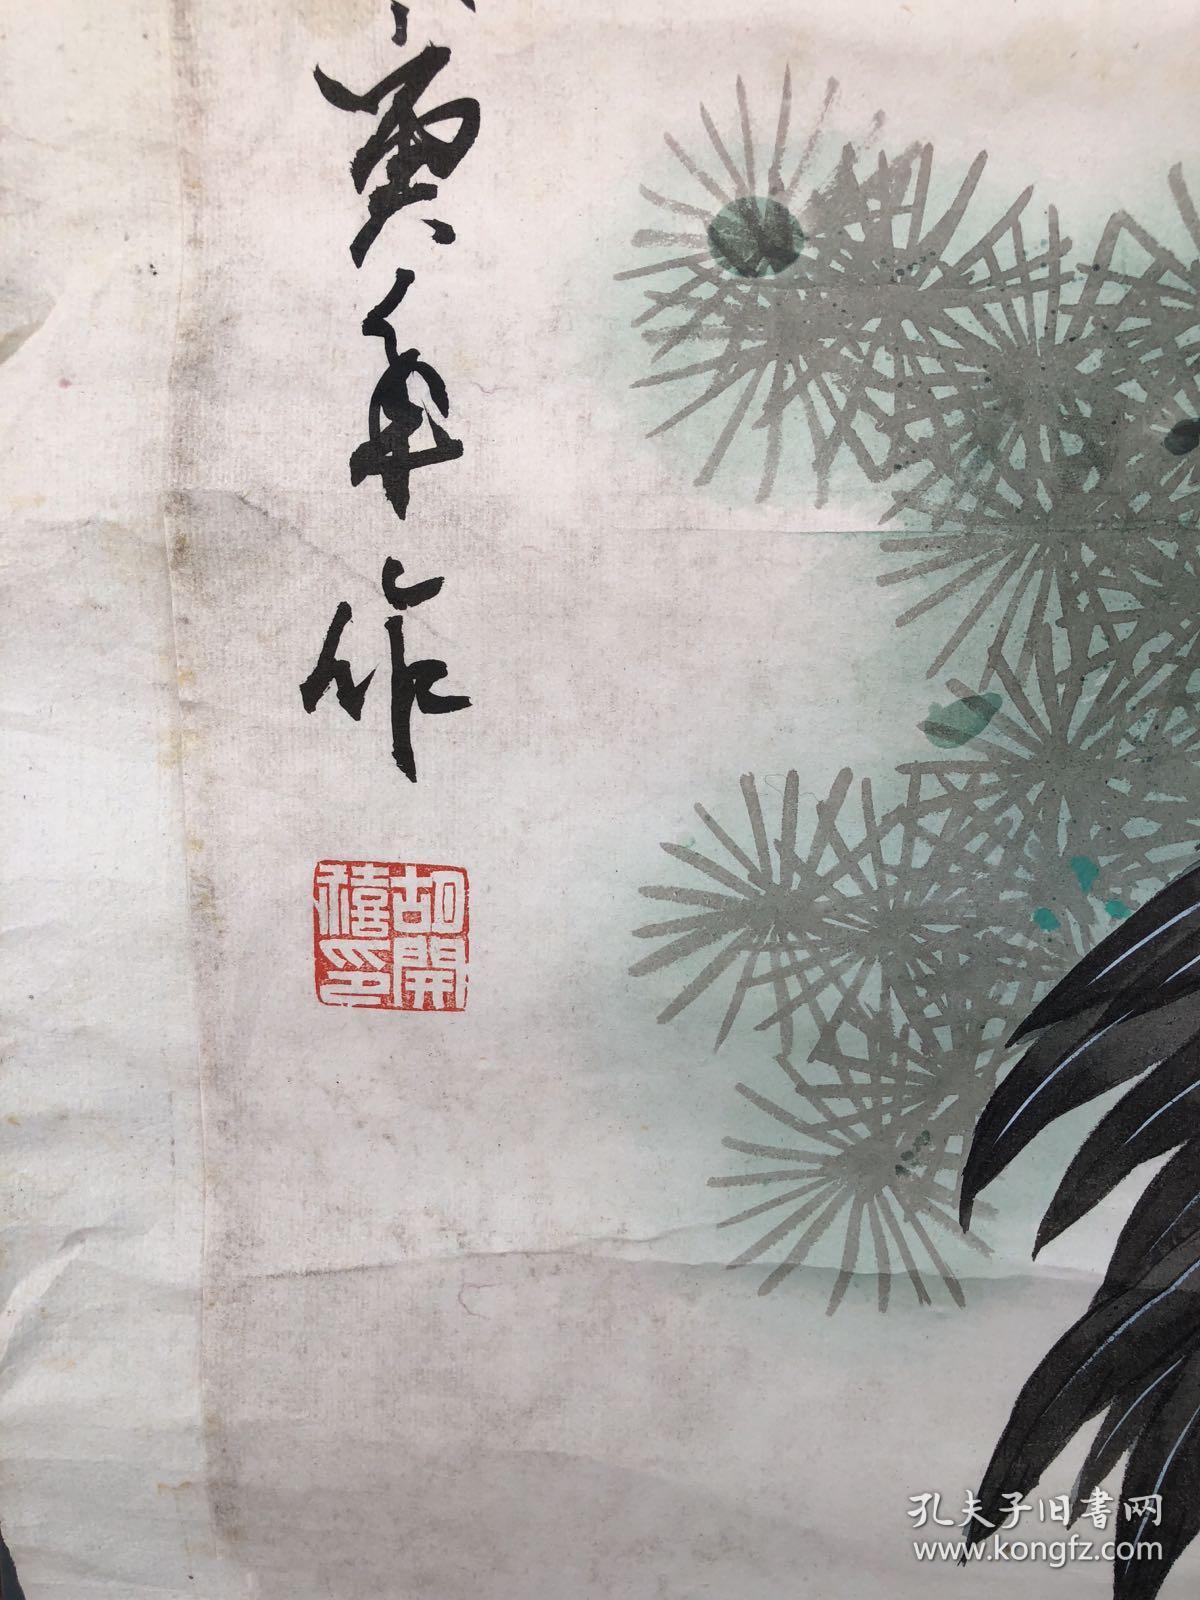 寅年作
胡開
禧印
孔夫子旧書网
www.kongfz.com